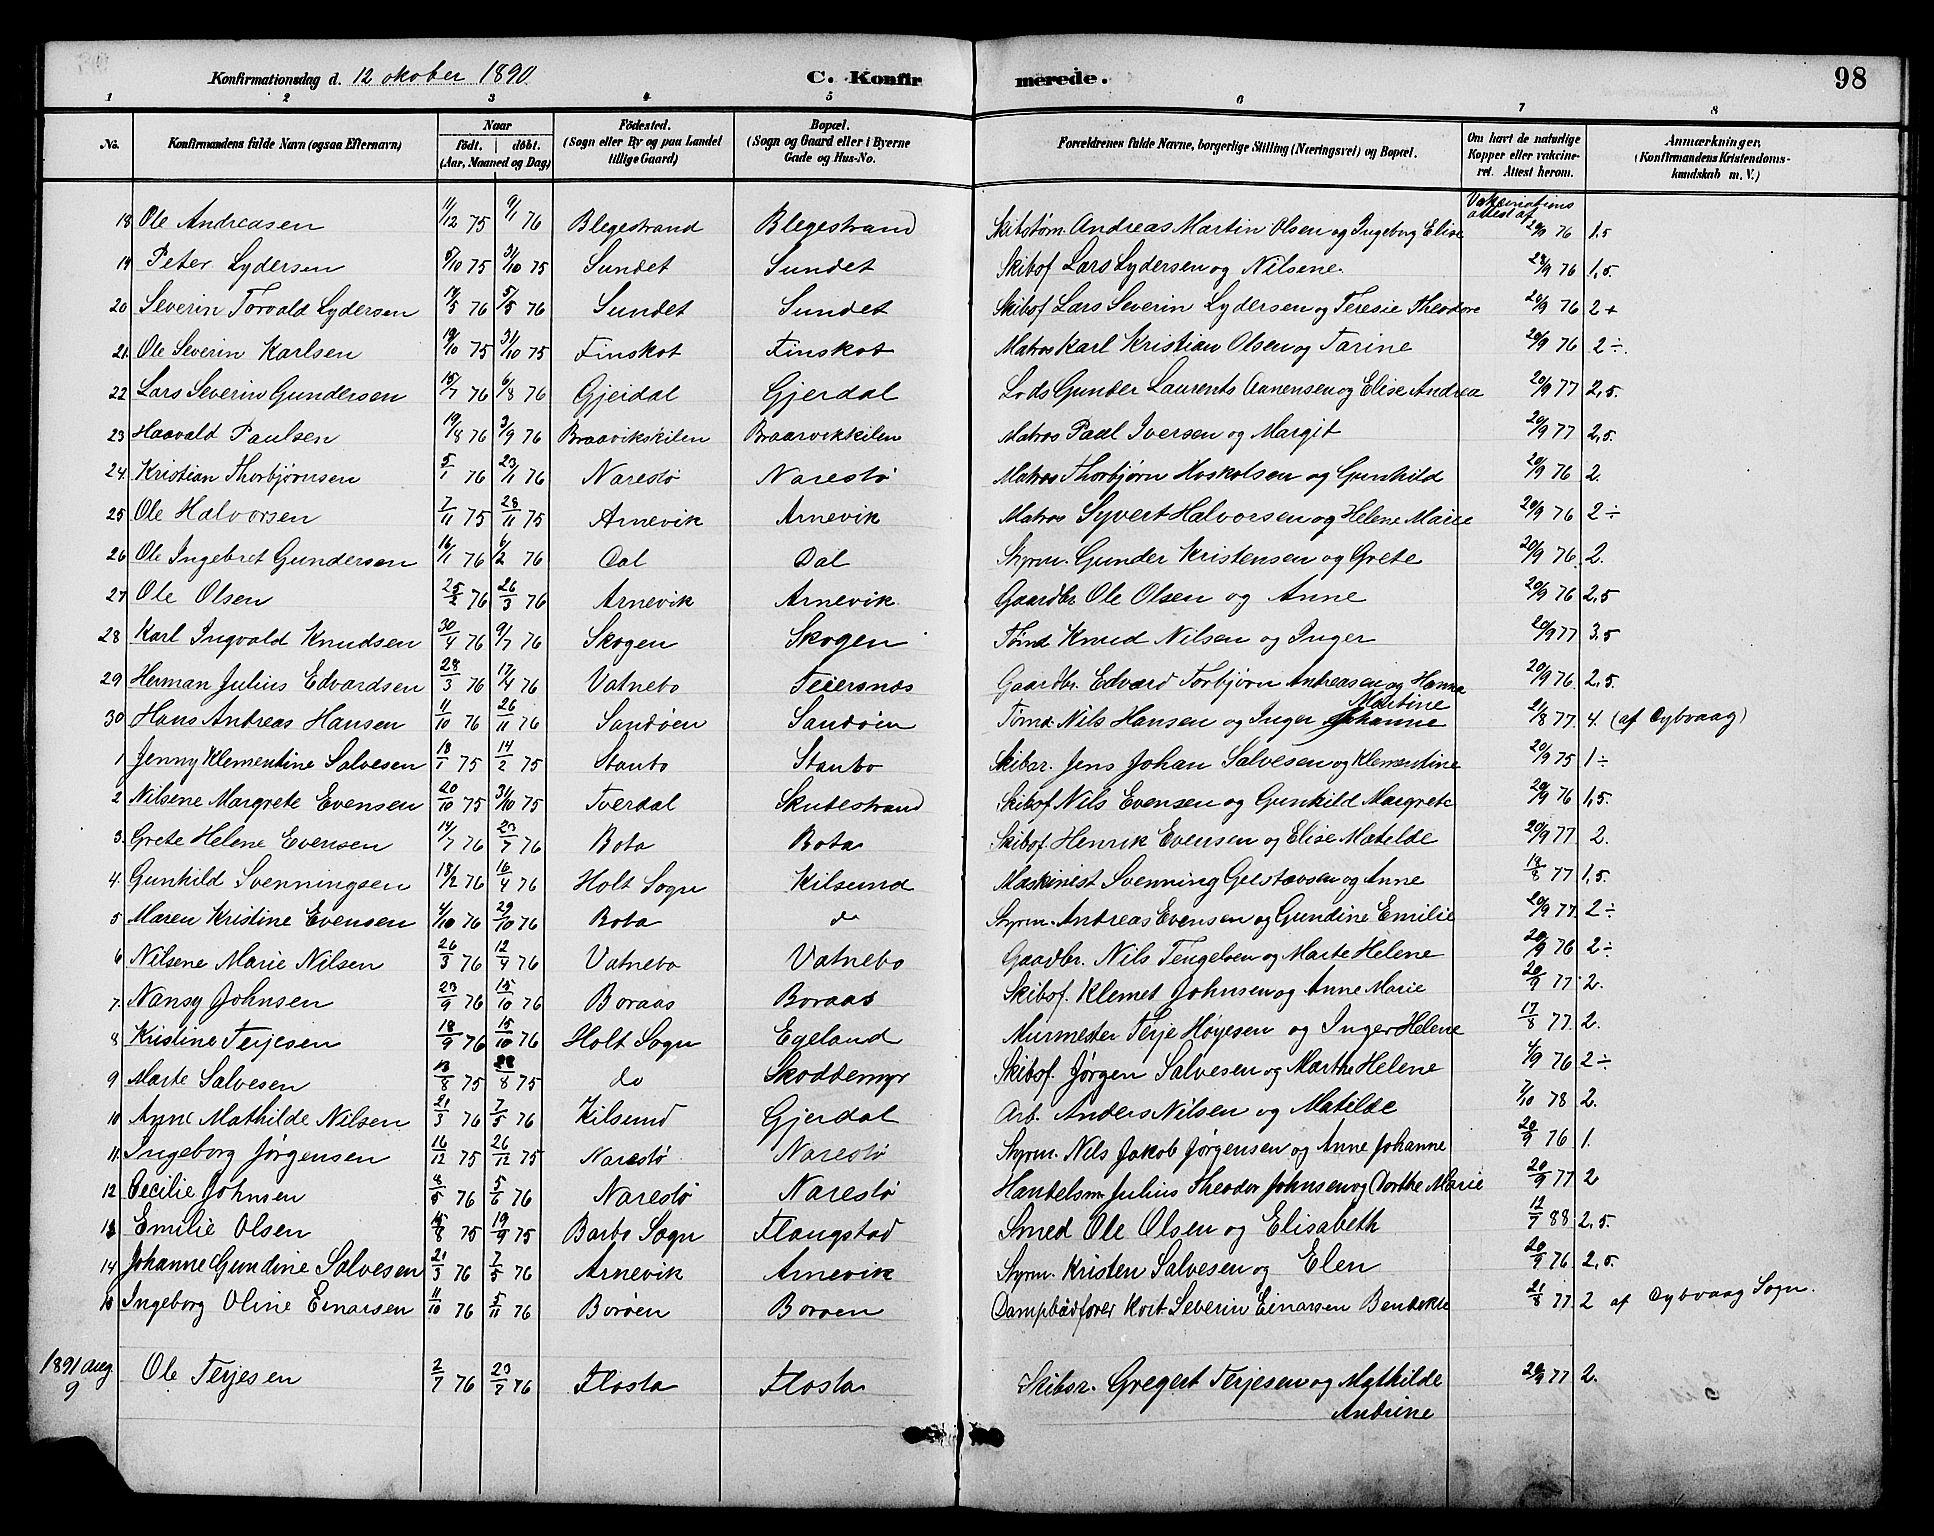 Konfirmationsdag d. 12 oktober 1890. C. Konfirmerede. 98
1 2 3 4 5 6 7 8
No. Konfirmandens fulde Navn (ogsaa Efternavn) Naar födt. döbt. (Aar, Maaned og Dag) Födested. (Sogn eller By og paa Landet tillige Gaard) Bopæl. (Sogn og Gaard eller i Byerne Gade og Hus-No. Forældrenes fulde Navne, borgerlige Stilling (Næringsvei) og Bopæl. Om havt de naturlige Kopper eller vakcineret. Attest herom. Anmærkninger, (Konfirmandens Kristendomskundskab m. V.)
Vakcinations attest af
18 Ole Andreasen 11/12 75 9/1 76 Blegestrand Blegestrand Skibstøm. Andreas Martin Olsen og Ingeborg Elise 20/9 76 1,5
19 Peter Lydersen 5/10 75 31/10 75 Sundet Sundet Skibsf Lars Lydersen og Nilsene. 28/9 76 1,5.
20 Severin Torvald Lydersen 14/3 76 5/5 76 Sundet Sundet Skibsf Lars Severin Lydersen og Teresie Theodore 20/9 76 2+
21 Ole Severin Karlsen 19/10 75 31/10 75 Finskot Finskot Matros Karl Kristian Olsen og Tarine 20/9 76 2÷.
22 Lars Severin Gundersen 15/7 76 6/8 76 Gjerdal Gjerdal Lods Gunder Laurents Aanensen og Elise Andrea 20/9 77 2,5.
23 Haavald Paulsen 19/8 76 3/9 76 Braavikskilen Braarvikkilen Matros Paul Iversen og Margit 20/9 77 2,5.
24. Kristian Thorbjørnsen 5/1 76 23/1 76 Narestø Narestø Matros Thorbjørn Hoskolsen og Gunhild 20/9 76 2.
25 Ole Halvorsen 7/11 75 28/11 75 Arnevik Arnevik Matros Syvert Halvorsen og Helene Marie 20/9 76 2÷
26 Ole Ingebret Gundersen 16/1 76 6/2 76 Dal Dal Styrm. Gunder Kristensen og Grete 20/9 76. 2.
27 Ole Olsen 25/2 76 26/3 76 Arnevik Arnevik Gaardbr Ole Olsen og Anne 20/9 76 2,5
28 Karl Ingvald Knudsen 30/4 76 9/7 76 Skogen Skogen Tømd Knud Nilsen og Inger 20/9 77 3,5
29 Herman Julius Edvardsen 28/3 76 17/4 76 Vatnebo Feiersnæs Gaardbr. Edvard Torbjørn Andreasen og Hanna Martine 20/9 76. 2,5.
30 Hans Andreas Hansen 11/10 76 26/11 76 Sandøen Sandøen Tømd. Nils Hansen og Inger Johanne 21/8 77. 4. (af Dybvaag)
1 Jenny Klementine Salvesen 18/1 75 14/2 75 Staubo Staubo Skibsr. Jens Johan Salvesen og Klementine 20/9 75 1÷
2 Nilsene Margrete Evensen 20/10 75 31/10 75 Tverdal Skutestrand Skibsf Nils Evensen og Gunhild Margrete 20/9 76 1,5.
3. Grete Helene Evensen 14/7 76 23/7 76 Bota Bota Skibsf. Henrik Evensen og Elise Matilde 20/9 77. 2.
4. Gunhild Svenningsen 18/2 76 16/4 76 Holt Sogn Kilsund Maskinist Svenning Gustavsen og Anne 18/8 77 1,5.
5 Maren Kristine Evensen 4/10 76 29/10 76 Bota do Styrm. Andreas Evensen og Gundine Emilie 20/9 77. 2÷
6 Nilsene Marie Nilsen 26/3 76 12/4 76 Vatnebo Vatnebo Gaadbr. Nils Tengelsen og Marte Helene 20/9 76 2÷
7. Nansy Johnsen 23/9 76 15/10 76 Boraas Boraas Skibsf. Klemet Johnsen og Anne Marie 20/9 77. 2.
8 Kristine Terjesen 18/9 76 15/10 76 Holt Sogn Egeland Murmester Terje Høyesen og Inger Helene 17/8 77. 2.
9 Marte Salvesen 13/8 75 28/8 75 do Skoddemyr Skibsf. Jørgen Salvesen og Marthe Helene 4/9 76 2÷
10 Anne Mathilde Nilsen 21/3 76 7/5 76 Kilsund Gjerdal Arb. Anders Nilsen og Matilde 7/10 78 2.
11 Ingeborg Jørgensen 16/12 75 26/12 75 Narestø Narestø Styrm. Nils Jakob Jørgensen og Anne Johanne 20/9 76 1.
12 Cecilie Johnsen 8/5 76 5/6 76 Narestø Narestø Handelsm Julius Theodor Johnsen og Dorthe Marie 20/9 77 2
13 Emilie Olsen 15/8 75 19/9 75 Barbo Sogn Flangstad Smed Ole Olsen og Elisabeth 12/7 88 2,5.
14 Johanne Gundine Salvesen 21/3 76 7/5 76 Arnevik Arnevik Styrm. Kristen Salvesen og Elen 20/9 76 2,5.
15 Ingeborg Oline Einarsen 11/10 76 5/11 76 Borøen Borøen Dampbådfører Kort Severin Einarsen Bendikte 21/8 77. 2 af Dybvaag Sogn.
1891 aug 9 Ole Terjesen 2/7 76 23/7 76 Flosta Flosta Skibsr. Gregert Terjesen og Mathilde Andrine 20/9 77 2.